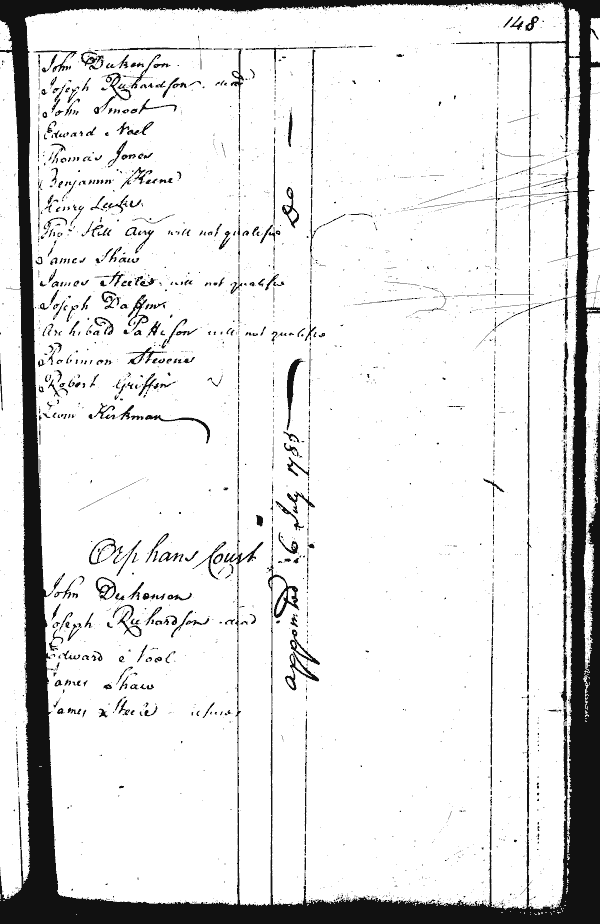 148
John Dickenson
Joseph Richardson dead
John Smoot
Edward Noel
Thomas Jones
Benjamin Keene
Henry Lecke
Thos Hill Airy will not qualifie
James Shaw
James Steele will not qualifie
Joseph Daffin
Archibald Pattison will not qualifie
Robinson Stevens
Robert Griffin
Levin Kirkman
Do
appointed 26 July 1785
Orphans Court
John Dickenson
Joseph Richardson dead
Edward Nool
James Shaw
James Steele refuses